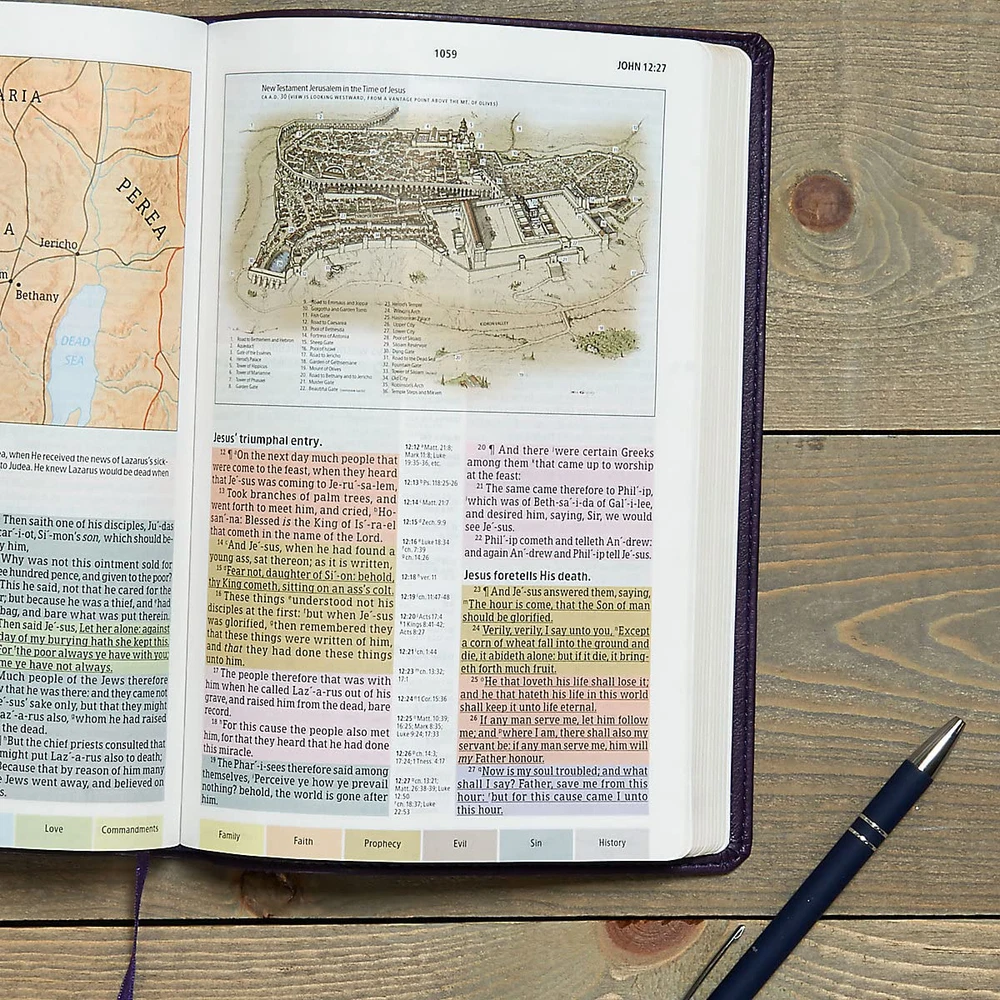 ARIA
PEREA
A
Jericho
Bethany
DEAD
SEA
a, when He received the news of Lazarus's sick-
to Judea. He knew Lazarus would be dead when
Then saith one of his disciples, Ju´-das
car´-i-ot, Si´-mon's son, which should be-
y him,
Why was not this ointment sold for
ee hundred pence, and given to the poor?
This he said, not that he cared for the
r; but because he was a thief, and ˣhad
bag, and bare what was put therein.
Then said Je´-sus, Let her alone: against
day of my burying hath she kept this.
For ʸthe poor always ye have with you;
me ye have not always.
Much people of the Jews therefore
w that he was there: and they came not
e´-sus' sake only, but that they might
az´-a-rus also, ᶻwhom he had raised
the dead.
But the chief priests consulted that
might put Laz´-a-rus also to death;
Because that by reason of him many
e Jews went away, and believed on
s.
Love
Commandments
1059
JOHN 12:27
New Testament Jerusalem in the Time of Jesus
(A.D. 30 (VIEW IS LOOKING WESTWARD, FROM A VANTAGE POINT ABOVE THE MT. OF OLIVES)
KIDRON VALLEY
1. Road to Bethlehem and Hebron
2. Aqueduct
3. Gate of the Essenes
4. Herod's Palace
5. Tower of Hippicus
6. Tower of Mariamne
7. Tower of Phasael
8. Garden Gate
9. Road to Emmaus and Joppa
10. Golgotha and Garden Tomb
11. Fish Gate
12. Road to Caesarea
13. Pool of Bethesda
14. Fortress of Antonia
15. Sheep Gate
16. Pool of Israel
17. Road to Jericho
18. Garden of Gethsemane
19. Mount of Olives
20. Road to Bethany and to Jericho
21. Muster Gate
22. Beautiful Gate
23. Herod's Temple
24. Wilson's Arch
25. Hasmonean Palace
26. Upper City
27. Lower City
28. Pool of Siloam
29. Siloam Reservoir
30. Dung Gate
31. Road to the Dead Sea
32. Fountain Gate
33. Tower of Siloam
34. Old City
35. Robinson's Arch
36. Temple Steps and Mikveh
Jesus' triumphal entry.
12 ¶ On the next day much people that
were come to the feast, when they heard
that Je´-sus was coming to Je-ru´-sa-lem,
13 Took branches of palm trees, and
went forth to meet him, and cried, Ho-
san´-na: Blessed is the King of Is´-ra-el
that cometh in the name of the Lord.
14 And Je´-sus, when he had found a
young ass, sat thereon; as it is written,
15 Fear not, daughter of Si´-on: behold,
thy King cometh, sitting on an ass's colt.
16 These things understood not his
disciples at the first: but when Je´-sus
was glorified, then remembered they
that these things were written of him,
and that they had done these things
unto him.
17 The people therefore that was with
him when he called Laz´-a-rus out of his
grave, and raised him from the dead, bare
record.
18 For this cause the people also met
him, for that they heard that he had done
this miracle.
19 The Phar´-i-sees therefore said among
themselves, Perceive ye how ye prevail
nothing? behold, the world is gone after
him.
12:12 Matt. 21:8;
Mark 11:8; Luke
19:35-36, etc.
12:13 Ps. 118:25-26
12:14 Matt. 21:7
12:15 Zech. 9:9
12:16 Luke 18:34
ch. 7:39
ch. 14:26
12:18 ver. 11
12:19 ch. 11:47-48
12:20 Acts 17:4
1 Kings 8:41-42;
Acts 8:27
12:21 ch. 1:44
12:23 ch. 13:32;
17:1
12:24 1 Cor. 15:36
12:25 Matt. 10:39;
16:25; Mark 8:35;
Luke 9:24; 17:33
12:26 ch. 14:3;
17:24; 1 Thess. 4:17
12:27 ch. 13:21;
Matt. 26:38-39; Luke
12:50
ch. 18:37; Luke
22:53
20 ¶ And there were certain Greeks
among them that came up to worship
at the feast:
21 The same came therefore to Phil´-ip,
which was of Beth-sa´-i-da of Gal´-i-lee,
and desired him, saying, Sir, we would
see Je´-sus.
22 Phil´-ip cometh and telleth An´-drew:
and again An´-drew and Phil´-ip tell Je´-sus.
Jesus foretells His death.
23 ¶ And Je´-sus answered them, saying,
The hour is come, that the Son of man
should be glorified.
24 Verily, verily, I say unto you, Except
a corn of wheat fall into the ground and
die, it abideth alone: but if it die, it bring-
eth forth much fruit.
25 He that loveth his life shall lose it;
and he that hateth his life in this world
shall keep it unto life eternal.
26 If any man serve me, let him follow
me; and where I am, there shall also my
servant be: if any man serve me, him will
my Father honour.
27 Now is my soul troubled; and what
shall I say? Father, save me from this
hour: but for this cause came I unto
this hour.
Family
Faith
Prophecy
Evil
Sin
History